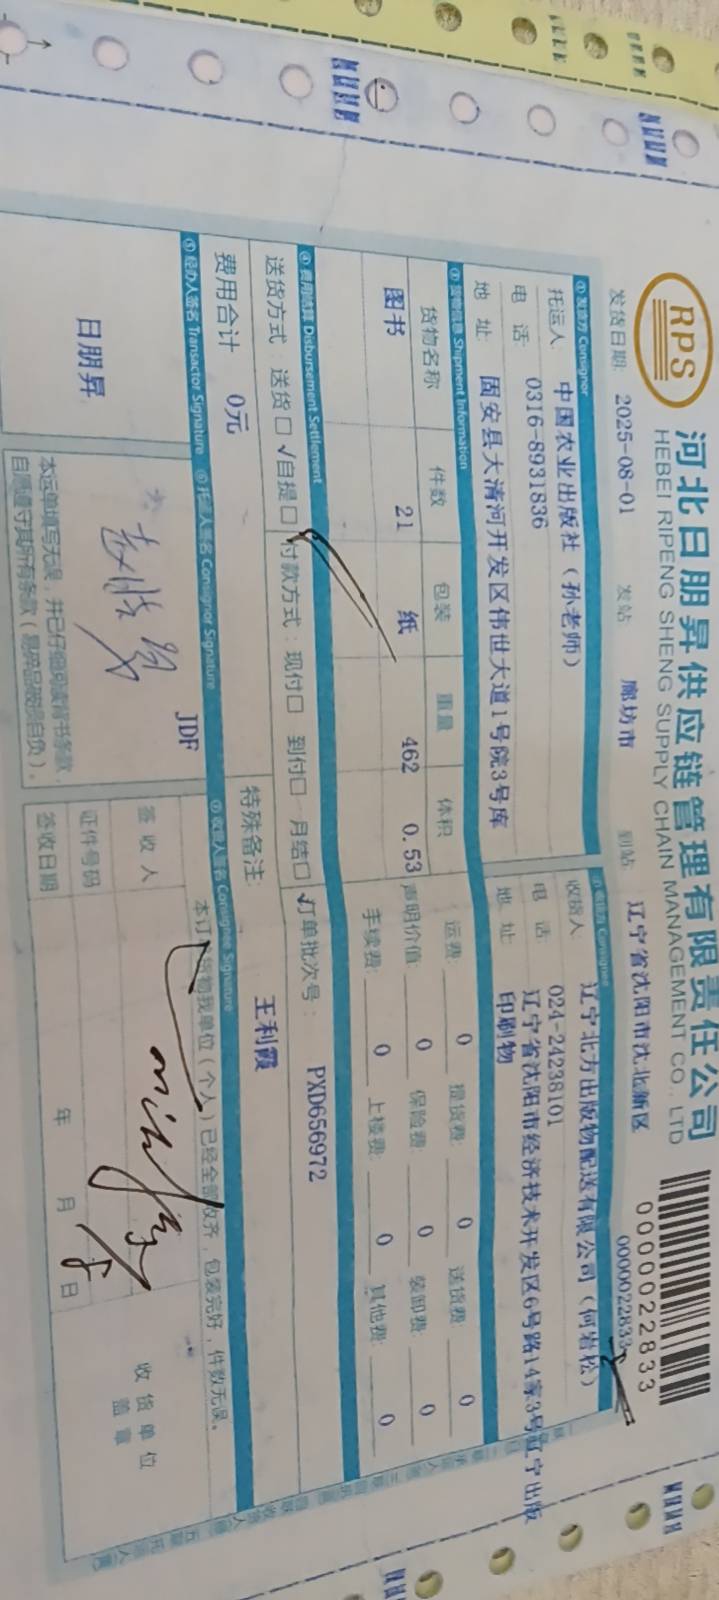 RPS
河北日朋昇供应链管理有限责任公司
HEBEI RIPENG SHENG SUPPLY CHAIN MANAGEMENT CO., LTD
0000022833
发货日期: 2025-08-01 发站 廊坊市 到站: 辽宁省沈阳市沈北新区 0000022833
① 发货方 Consignor
托运人 中国农业出版社（孙老师）
电 话 0316-8931836
地 址: 固安县大清河开发区伟世大道1号院3号库
Consignee
收货人 辽宁北方出版物配送有限公司（何岩松）
电 话: 024-24238101
地 址 辽宁省沈阳市经济技术开发区6号路14家3号辽宁出版
印刷物
③ 货物信息 Shipment Information
货物名称 件数 包装 重量 体积
图书 21 纸 462 0.53
运费: 0 提货费: 0 送货费: 0
声明价值: 0 保险费: 0 装卸费: 0
手续费: 0 上楼费: 0 其他费: 0
④ 费用结算 Disbursement Settlement
送货方式: 送货□ √自提□ 付款方式: 现付□ 到付□ 月结□ √订单批次号: PXD656972
费用合计 0元 特殊备注: 王利霞
⑤ 经办人签名 Transactor Signature ⑥ 托运人签名 Consignor Signature ⑦ 收货人签名 Consignee Signature
日朋昇
JDF
本运单填写无误，并已仔细阅读背书条款，
自愿遵守其所有条款（易碎品破损自负）。
本订单货物我单位（个人）已经全部收齐，包装完好，件数无误。
签收人
证件号码
签收日期 年 月 日
收货单位
盖章